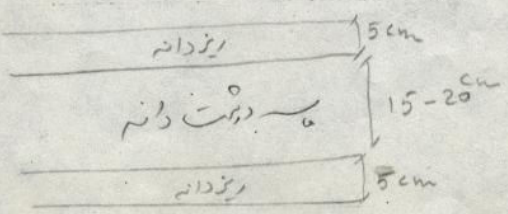 ریزدانه 5 cm
ماسه درشت دانه 15-20 cm
ریزدانه 5 cm